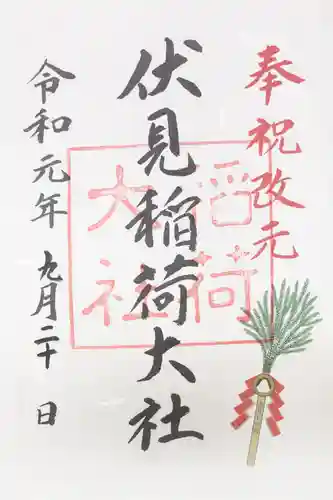 奉祝改元
伏見稲荷大社
稲荷
大社
令和元年 九月二十 日